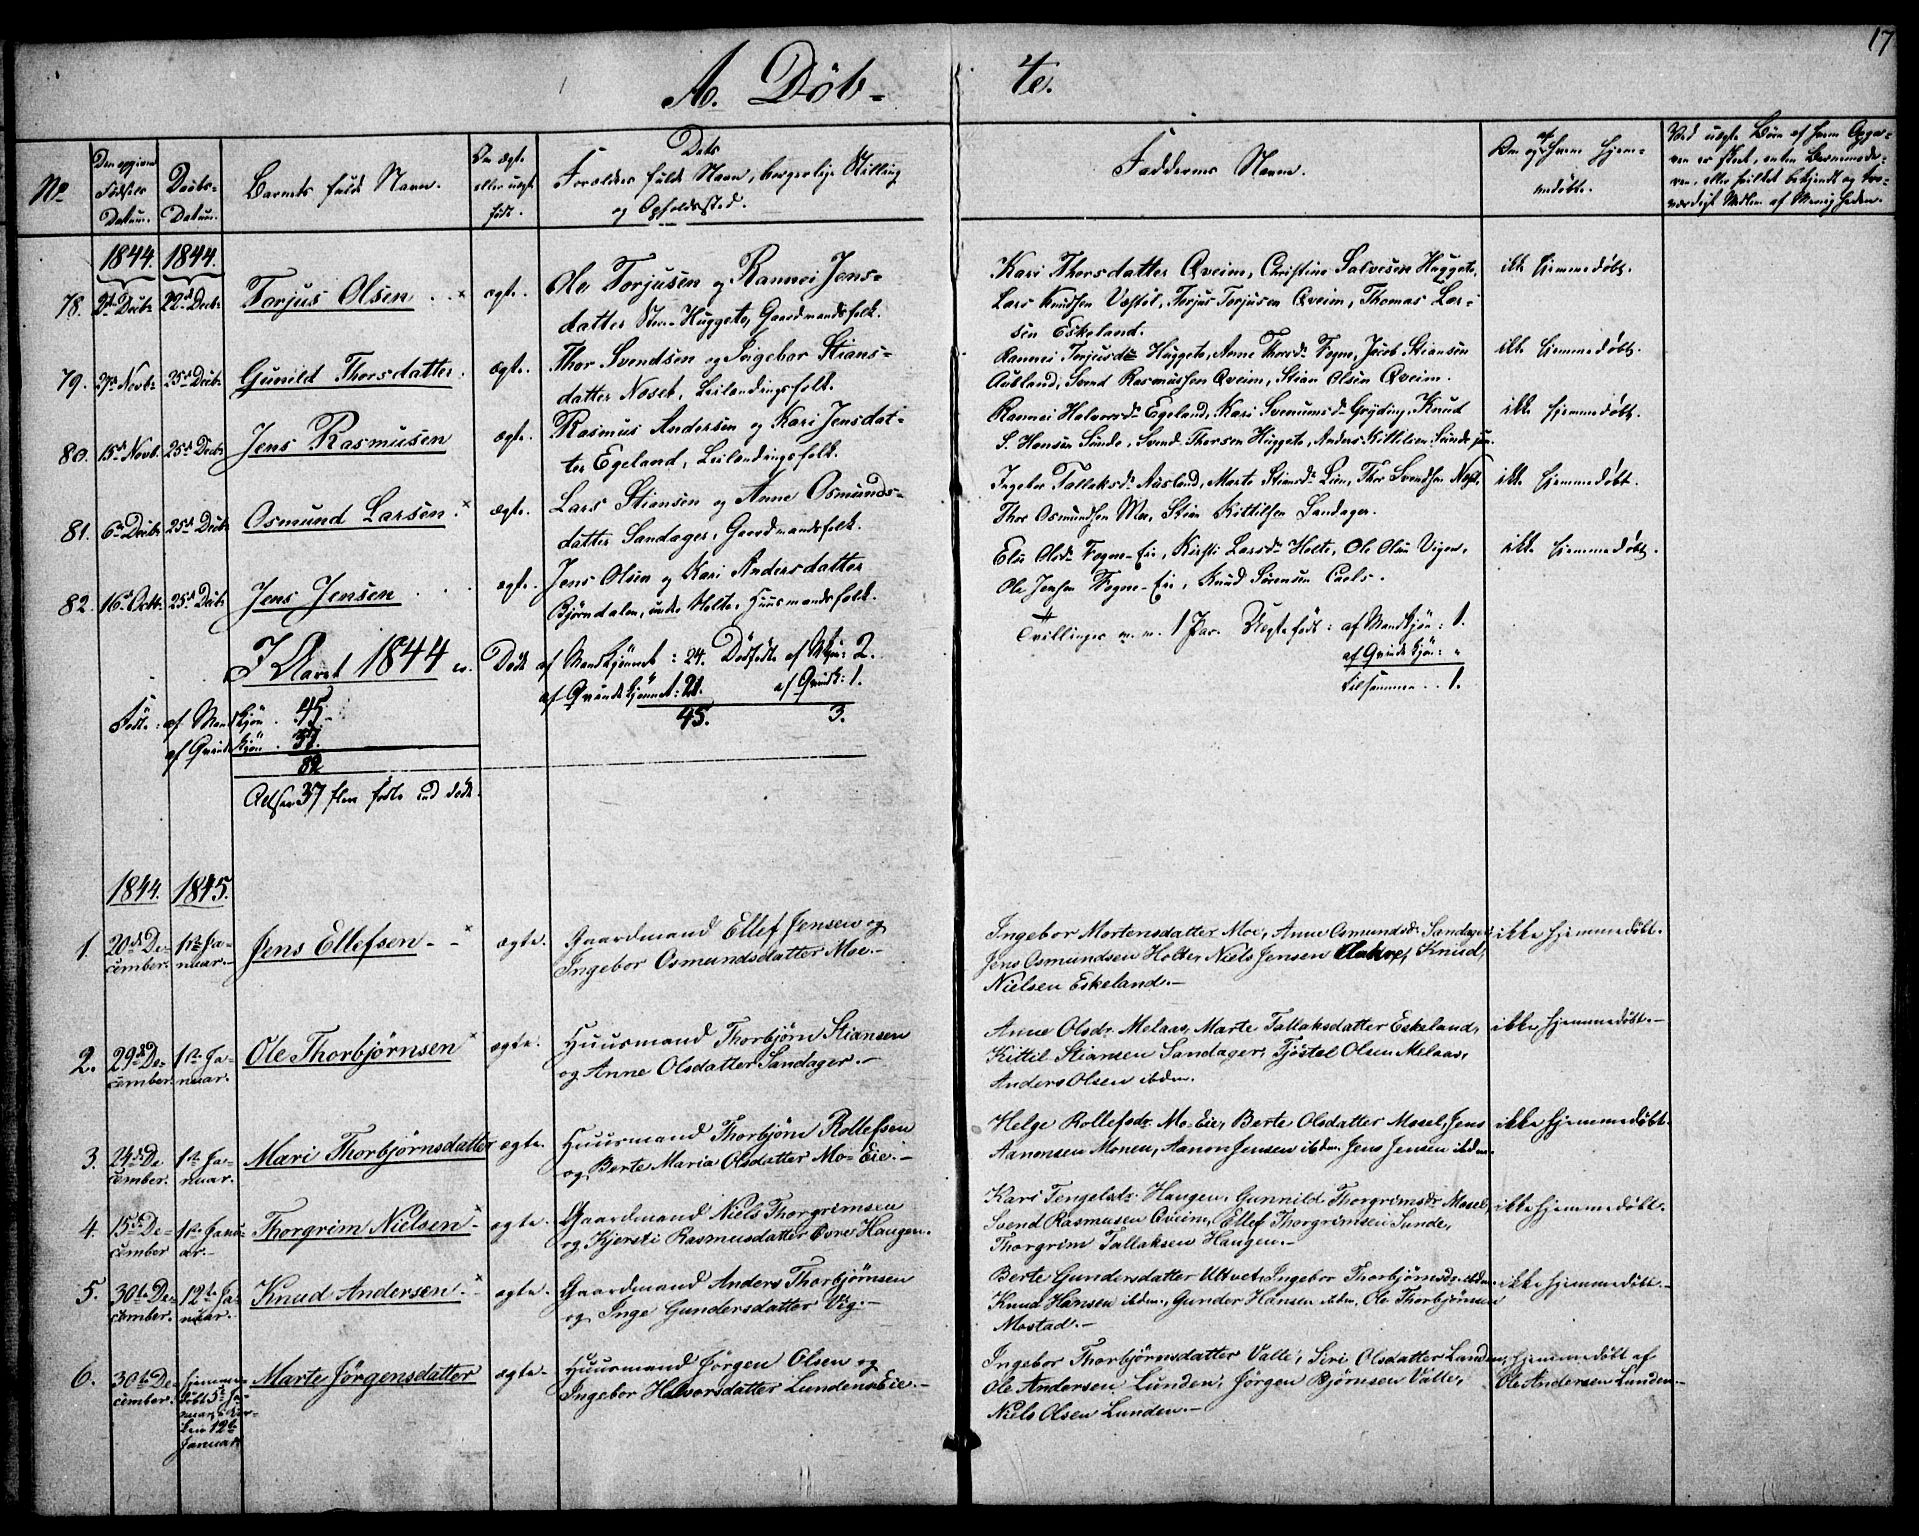 17
A. Döb-
te.
No
Den opgivne Födsels Datum.
Daabs-Datum.
Barnets fulde Navn.
Om ægte eller uægte födt.
Dets Forældres fulde Navn, borgerlige Stilling og Opholdssted.
Faddernes Navne.
Om og af hvem hjemmedöbt.
Ved uægte Börn af hvem Opgaven er skeet, enten Barnemoderen, eller hvilket bekjendt og troværdigt Medlem af Menigheden.
1844. 1844.
78. 22de Decbr Torjus Olsen ægte. Ole Torjusen og Rannei Jens-
datter Huggeto, Gaardmandsfolk.
Kari Thorsdatter Qveim, Christine Salvesen Huggeto,
Lars Knudsen Torjus Torjusen Qveim, Thomas Lar-
sen Eskeland.
ikke hjemmedöbt.
79. 27de Novbr 25de Decbr Gunild Thorsdatter. ægte. Thor Svendsen og Ingebor Stians-
datter Noset, Leilændingsfolk.
Rannei Torjusdr Huggeto, Anne Thorsdr Fogne, Jacob Stiansen
Aubland, Svend Rasmussen Qveim, Stian Olsen Qveim.
ikke hjemmedöbt.
80. 15de Novbr. 25de Decbr Jens Rasmusen ægte. Rasmus Andersen og Kari Jensdat-
ter Egeland, Leilændingsfolk.
Rannei Halvorsdr Egeland, Kari Gryting, Knud
S. Hansen Sunde, Svend Thorsen Huggeto, Anders Kittilsen Sunde
ikke hjemmedöbt.
81. 6te Decbr 25de Decbr Osmund Larsen. ægte. Lars Stiansen og Anne Osmunds-
datter Sandager, Gaardmandsfolk.
Ingebor Tallaksdr Marte Stiansdr Lien, Thor Svendsen Noset,
Thor Osmundsen Moe, Stian Kittilsen Sandager.
ikke hjemmedöbt.
82. 16de Octbr. 25de Decbr Jens Jensen ægte. Jens Olsen og Kari Andersdatter
Björndalen, under Holte, Huusmandsfolk.
Else Olsdr Fogne-Eie, Kirsti Larsdr Holte, Ole Olsen Vigen,
Ole Jensen Fogne-Eie, Knud Sörensen
ikke hjemmedöbt.
I Aaret 1844 er Döde af Mandkjönnet: 24. Dödfödte af Mkjön: 2.
af Qvindekjönnet: 21. af Qvindk: 1.
45. 3.
Tvillinger 1 Par. Uægtefödt: af Mandkjön: 1.
af Qvindekjön: "
tilsammen .. 1.
Födt: af Mandkjön . 45
af Qvindekjön . 37.
82
Altsaa 37 flere födte end döde.
1844. 1845.
1. 20de De- 1ste Ja- Jens Ellefsen - - ægte. Gaardmand Ellef Jensen og
cember. nuar.- Ingebor Osmundsdatter Moe.-
Ingebor Mortensdatter Moe, Anne Osmundsdr Sandager,
Jens Osmundsen Holte, Niels Jensen Knud,
Nielsen Eskeland.-
ikke hjemmedøbt.
2. 29de De- 1ste Ja- Ole Thorbjørnsen ægte. Huusmand Thorbjörn Stiansen
cember. nuar. og Anne Olsdatter Sandager.-
Anne Olsdr. Melaas, Marte Tallaksdatter Eskeland,
Kittil Stiansen Sandager, Tjöstel Olsen Melaas,
Anders Olsen ibdm.
ikke hjemmedøbt.-
3. 24de De 1ste Ja- Mari Thorbjørnsdatter ægte. Huusmand Thorbjörn Rollefsen
cember. nuar. og Berte Maria Olsdatter Mo-Eie.-
Helge Rollefsdr. Mo-Eie, Berte Olsdatter Mosel, Jens
Aanonsen Monen, Aanon Jensen ibdm. Jens Jensen ibdm.
ikke hjemmedøbt.
4. 15de De- 1ste Janu- Thorgrim Nielsen ægte. Gaardmand Niels Thorgrimsen
cember ar.- og Kjersti Rasmusdatter Övre Haugen.
Kari Tengelsdr. Haugen, Gunnild Thorgrimsdr Mosel,
Svend Rasmusen Qveim, Ellef Thorgrimsen Sunde,
Thorgrim Tallaksen Haugen.-
ikke hjemmedøbt.
5. 30te De- 12te Ja- Knud Andersen. ægte. Gaardmand Anders Thorbjørnsen
cember. nuar. og Inge Gundersdatter Vig.-
Berte Gundersdatter Ultvet, Ingebor Thorbjørnsdr. ibdm.
Knud Hansen ibdm., Gunder Hansen ibdm, Ole Thorbjørnsen
Mostad.-
ikke hjemmedøbt.-
6. 30te De- hjemme- Marte Jørgensdatter ægte. Huusmand Jørgen Olsen og
cember. døbt 5te Ja- Ingebor Halvorsdatter Lundens Eie.-
nuar, i Kir-
ken 12te
Januar
Ingebor Thorbjørnsdatter Valle, Siri Olsdatter Lunden,
Ole Andersen Lunden, Jørgen Bjørnsen Valle,
Niels Olsen Lunden.-
hjemmedøbt af
Ole Andersen Lunden.-